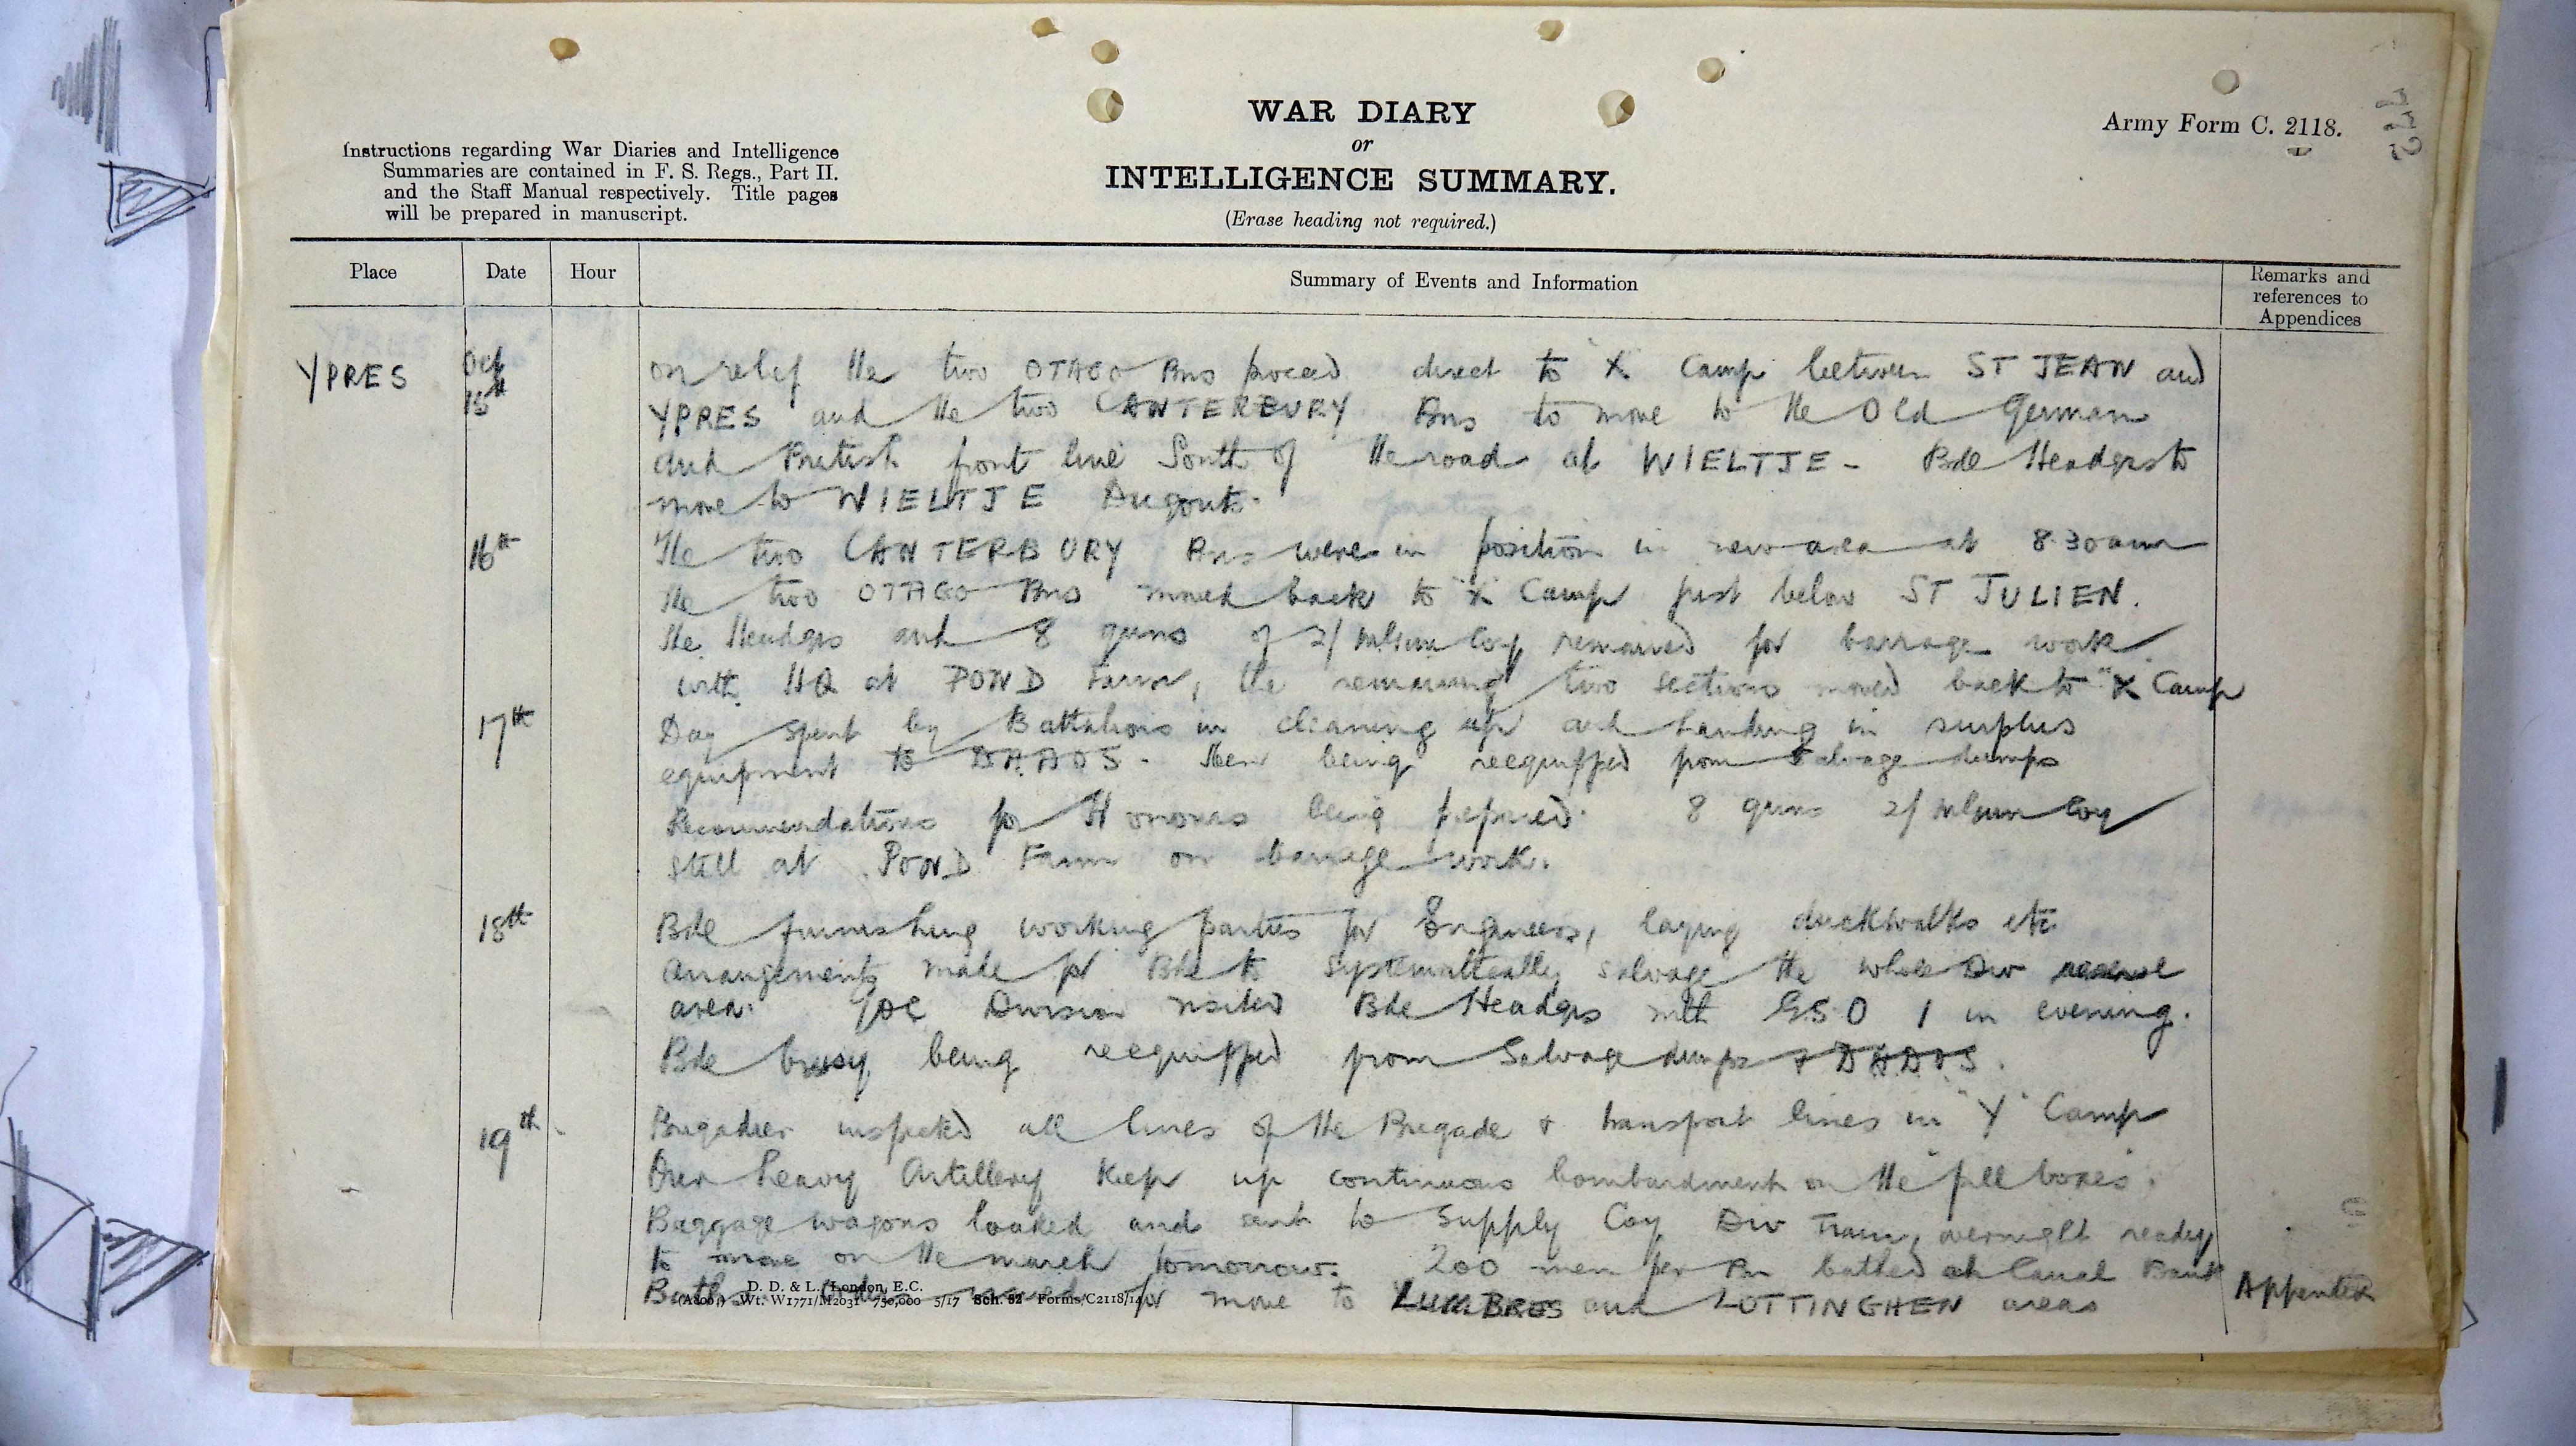 WAR DIARY
or
INTELLIGENCE SUMMARY.
(Erase heading not required.)
Army Form C. 2118.
Instructions regarding War Diaries and Intelligence
Summaries are contained in F. S. Regs., Part II.
and the Staff Manual respectively. Title pages
will be prepared in manuscript.
Place Date Hour Summary of Events and Information Remarks and references to Appendices
YPRES Oct 15th on relief the two OTAGO Bns proceed direct to "X" Camp between ST JEAN and
YPRES and the two CANTERBURY Bns to move to the Old German
and British front line South of the road at WIELTJE - Bde Headqrs to
move to WIELTJE Dugouts.
16th The two CANTERBURY Bns were in position in new area at 8.30am
The two OTAGO Bns moved back to "X" Camp just below ST JULIEN.
The Headqrs and 8 guns of 2/ M Gun Coy remained for barrage work
with HQ at POND Farm, the remaining two sections moved back to "X" Camp
17th Day spent by Battalions in cleaning up and handing in surplus
equipment to DADOS. Men being reequipped from salvage dumps
Recommendations for Honours being prepared. 8 guns 2/ M Gun Coy
still at POND Farm on barrage work.
18th Bde furnishing working parties for Engineers, laying duckwalks etc
Arrangements made for Bde to systematically salvage the whole Div reserve
area. GOC Division visited Bde Headqrs with GSO 1 in evening.
Bde busy being reequipped from Salvage dumps & DADOS.
19th - Brigadier inspected all lines of the Brigade & transport lines in "Y" Camp
Our heavy Artillery keep up continuous bombardment on the "pill boxes".
Baggage wagons loaded and sent to Supply Coy Div Train, overnight ready
to move on the march tomorrow. 200 men per Bn bathed at Canal Bank
Baths. Orders issued for move to LUMBRES and LOTTINGHEN areas Appendix
D. D. & L., London, E.C.
(A8004) Wt. W1771/M2031 750,000 5/17 Sch. 52 Forms/C2118/14